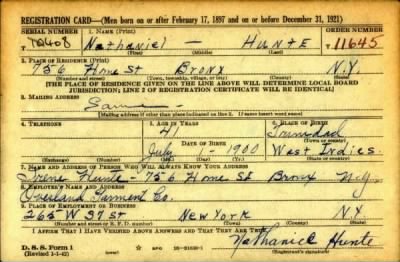 REGISTRATION CARD—(Men born on or after February 17, 1897 and on or before December 31, 1921)
SERIAL NUMBER 1. NAME (Print) ORDER NUMBER
T 2408 Nathaniel — Hunte T 11645
(First) (Middle) (Last)
2. PLACE OF RESIDENCE (Print)
756 Home St Bronx N.Y.
(Number and street) (Town, township, village, or city) (County) (State)
[THE PLACE OF RESIDENCE GIVEN ON THE LINE ABOVE WILL DETERMINE LOCAL BOARD
JURISDICTION; LINE 2 OF REGISTRATION CERTIFICATE WILL BE IDENTICAL]
3. MAILING ADDRESS
Same
[Mailing address if other than place indicated on line 2. If same insert word same]
4. TELEPHONE 5. AGE IN YEARS 6. PLACE OF BIRTH
41 Trinidad
DATE OF BIRTH (Town or county)
July 1 - 1900 West Indies
(Exchange) (Number) (Mo.) (Day) (Yr.) (State or country)
7. NAME AND ADDRESS OF PERSON WHO WILL ALWAYS KNOW YOUR ADDRESS
Irene Hunte - 756 Home St Bronx N.Y.
8. EMPLOYER'S NAME AND ADDRESS
Overland Garment Co.
9. PLACE OF EMPLOYMENT OR BUSINESS
265 W 37 St New York N.Y.
(Number and street or R. F. D. number) (Town) (County) (State)
I AFFIRM THAT I HAVE VERIFIED ABOVE ANSWERS AND THAT THEY ARE TRUE.
D. S. S. Form 1 Nathaniel Hunte
(Revised 1-1-42) GPO (Registrant's signature)